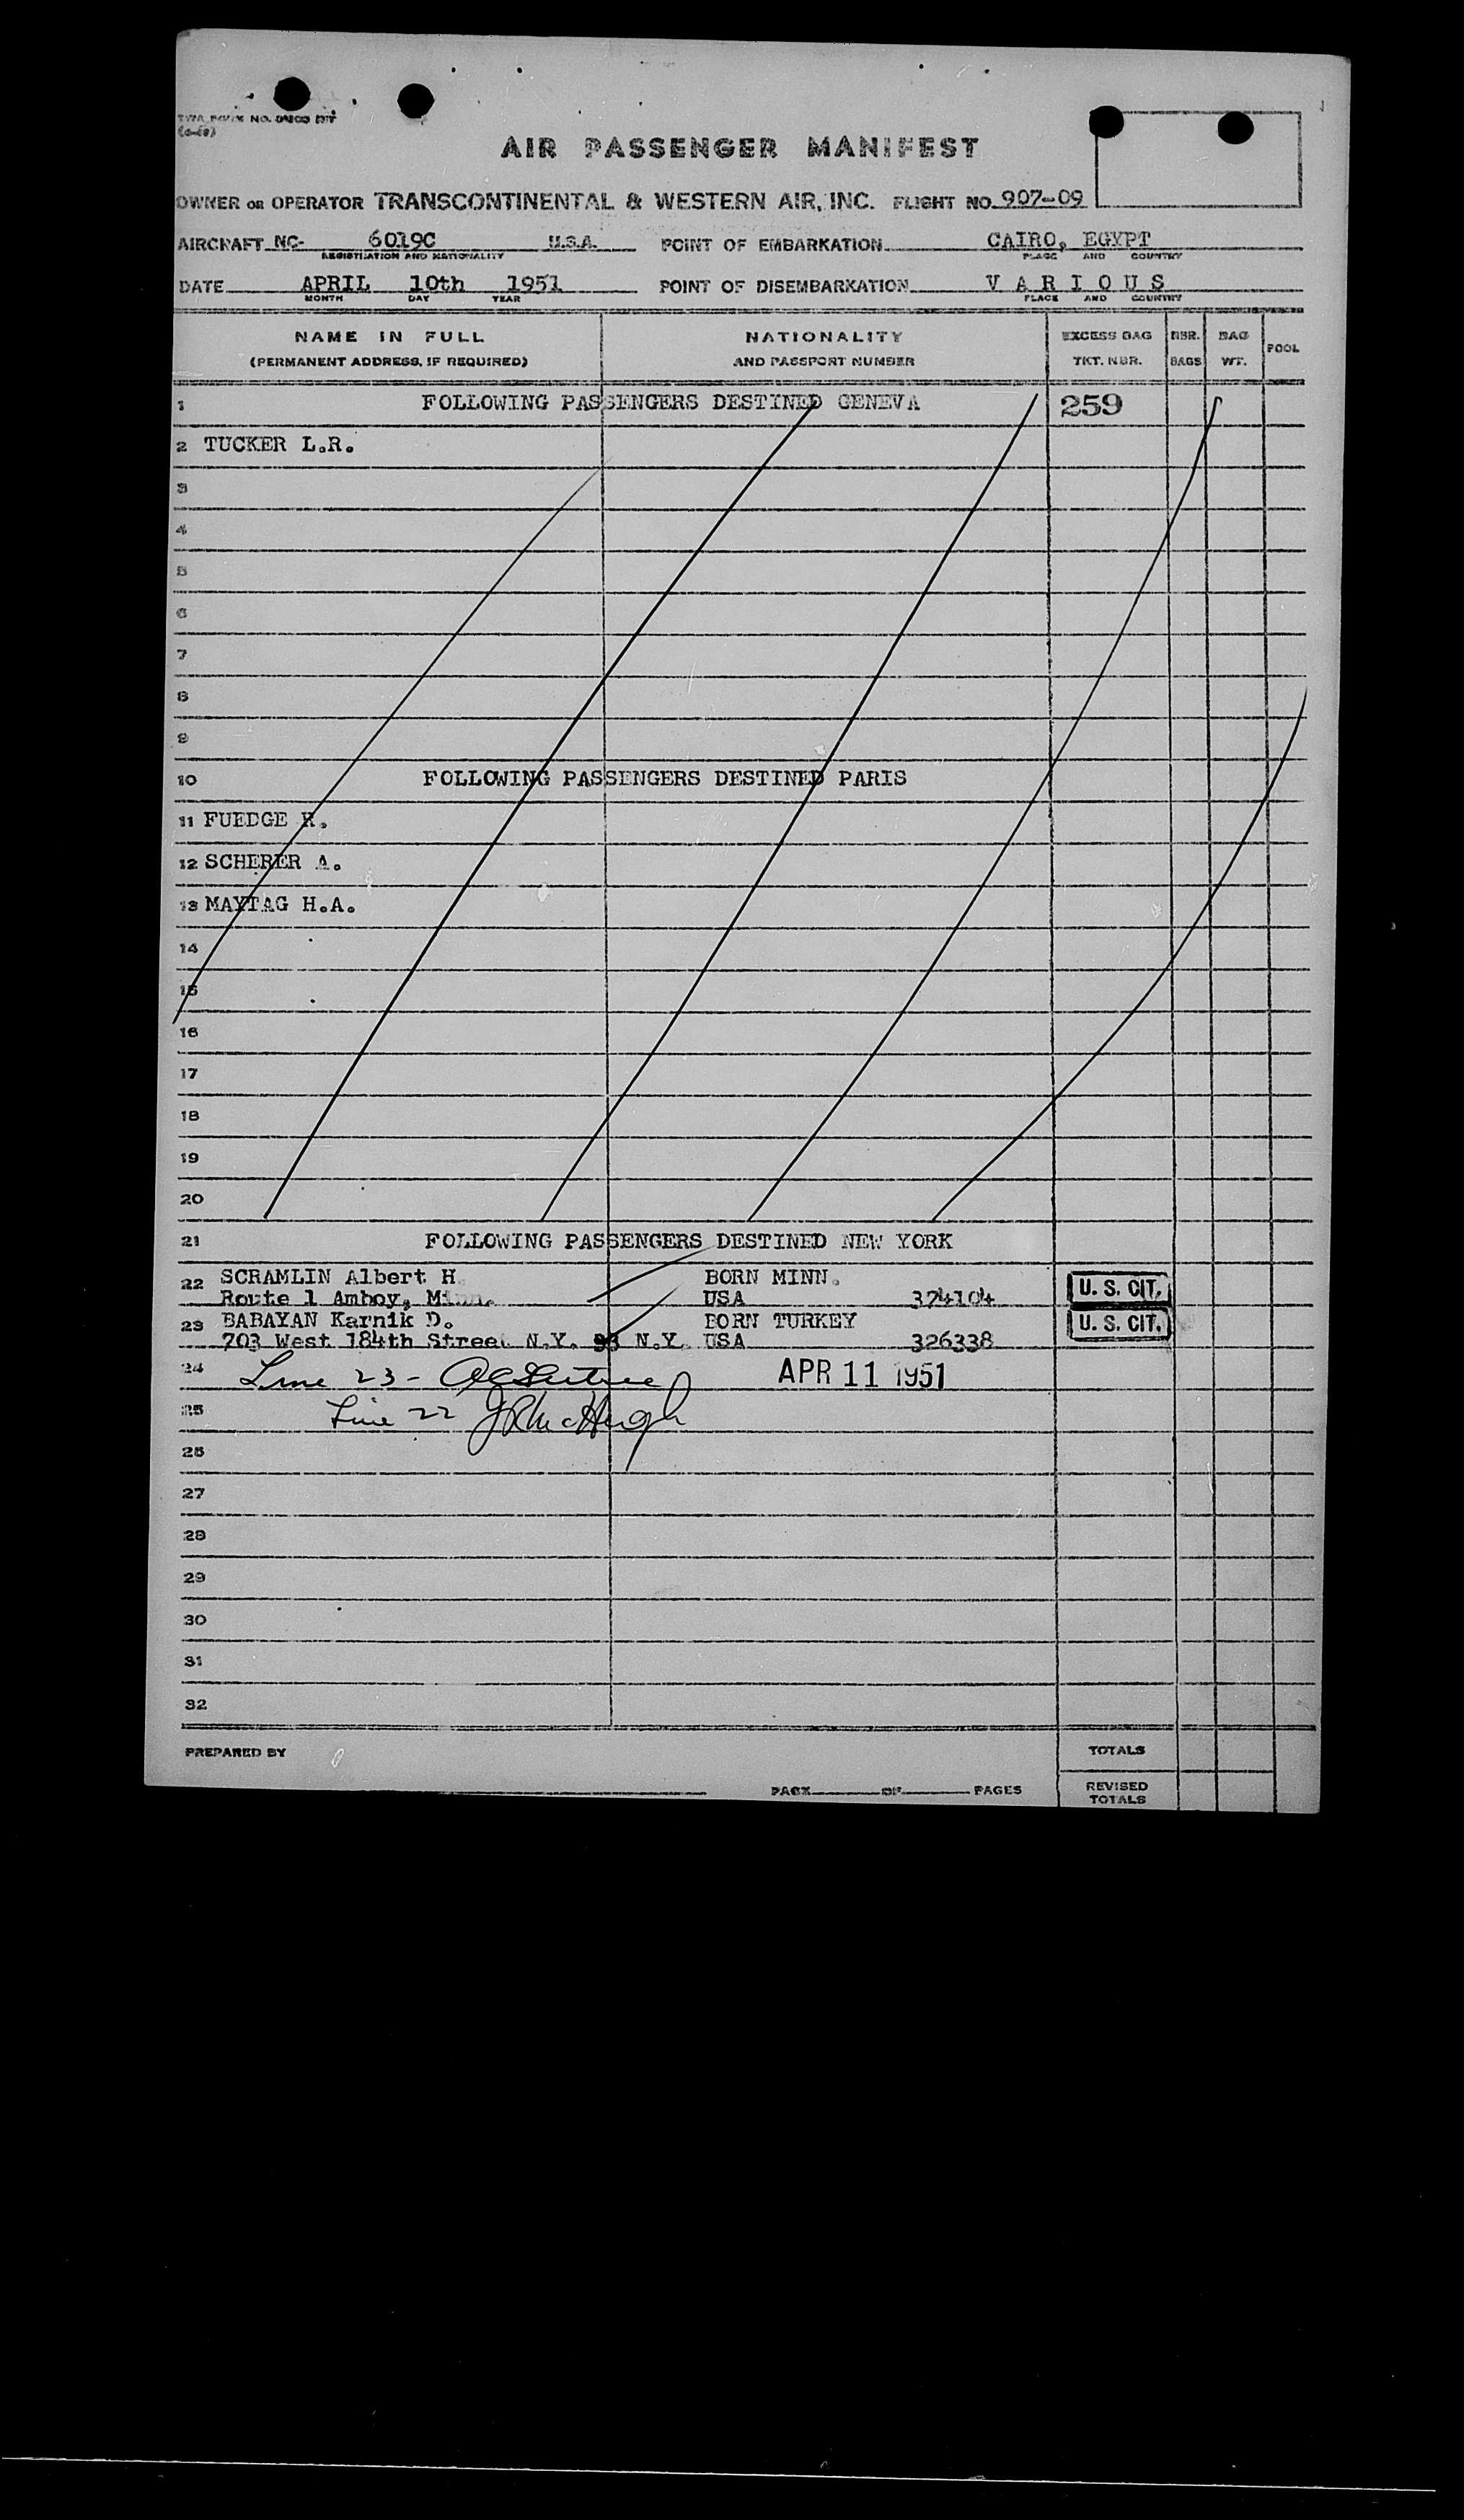 AIR PASSENGER MANIFEST
OWNER OR OPERATOR TRANSCONTINENTAL & WESTERN AIR, INC. FLIGHT NO. 907-09
AIRCRAFT NC- 6019C U.S.A. POINT OF EMBARKATION CAIRO, EGYPT
REGISTRATION AND NATIONALITY PLACE AND COUNTRY
DATE APRIL 10th 1951 POINT OF DISEMBARKATION V A R I O U S
MONTH DAY YEAR PLACE AND COUNTRY
NAME IN FULL NATIONALITY EXCESS BAG NBR. BAG POOL
(PERMANENT ADDRESS, IF REQUIRED) AND PASSPORT NUMBER TKT. NBR. BAGS WT.
1 FOLLOWING PASSENGERS DESTINED GENEVA 259
2 TUCKER L.R.
3
4
5
6
7
8
9
10 FOLLOWING PASSENGERS DESTINED PARIS
11 FUEDGE R.
12 SCHERER A.
13 MAYTAG H.A.
14
15
16
17
18
19
20
21 FOLLOWING PASSENGERS DESTINED NEW YORK
22 SCRAMLIN Albert H. BORN MINN.
Route 1 Amboy, Minn. USA 374104 U. S. CIT.
23 BABAYAN Karnik D. BORN TURKEY
703 West 184th Street N.Y. 33 N.Y. USA 326338 U. S. CIT.
24 Line 23 - APR 11 1951
25 Line 22 J R McHugh
26
27
28
29
30
31
32
PREPARED BY TOTALS
PAGE OF PAGES REVISED
TOTALS